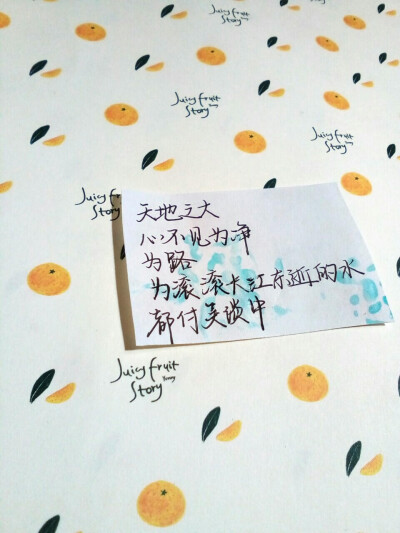 Juicy fruit
Story
Juicy fruit
Story
Juicy fruit
Story
Juicy fr
Story
天地之大
心不见为净
为路
为滚滚大江东逝的水
都付笑谈中
Juicy fruit
Story